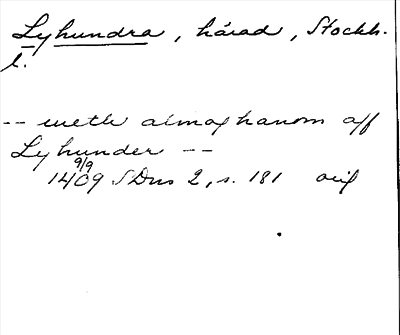 Lyhundra, härad, Stockh.
l.
-- meth almoghanom aff
Lyhunder --
9/9
1409 SDns 2, s. 181 orig